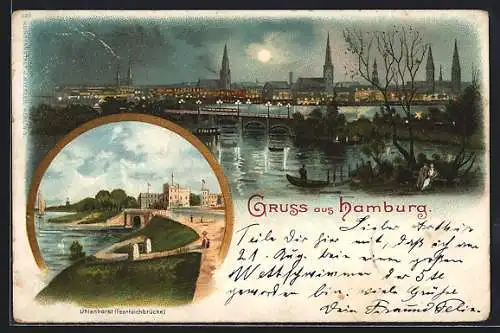 GRUSS aus Hamburg.
Uhlenhorst (Feenteichbrücke)
Lieber Arthur
Teile Dir hier mit, daß ich am
21. Aug. beim einem großen
Wettschwimmen der 5te
geworden bin, viele Grüße
Dein Freund Felix.